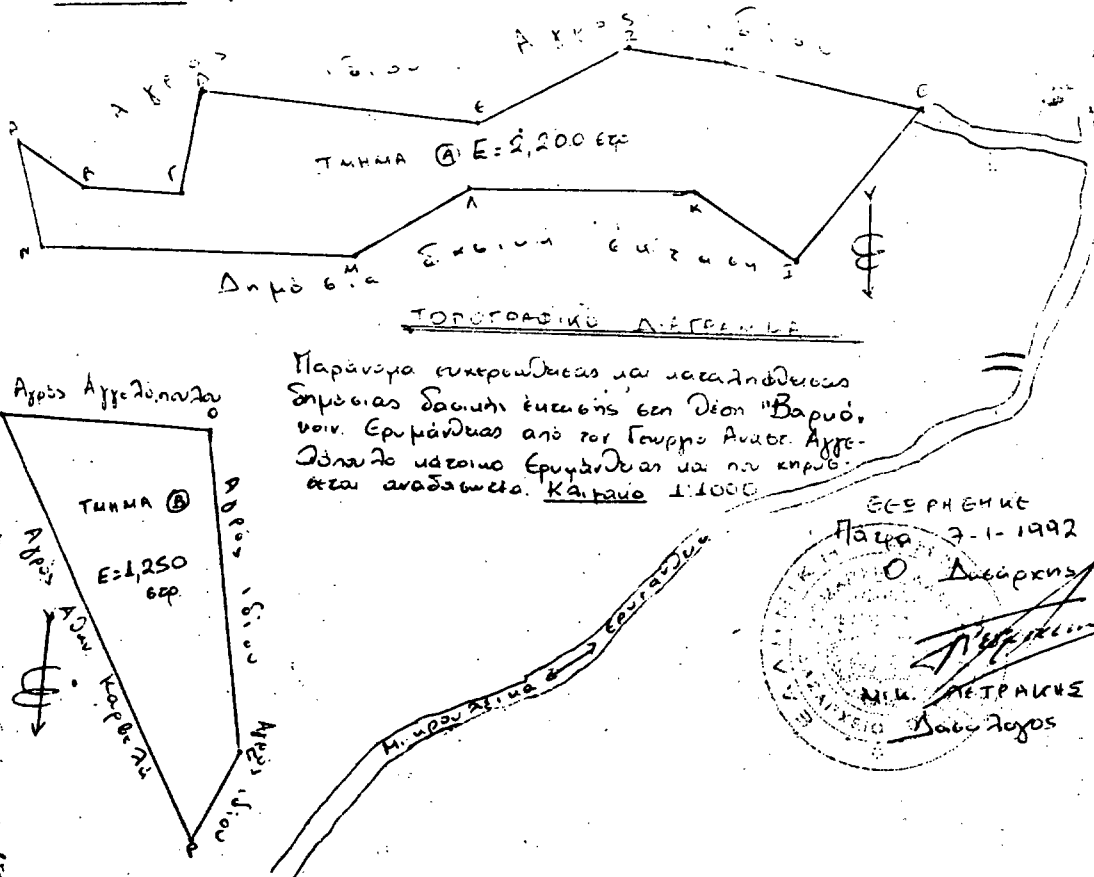 Αγρός ιδίου Αγρός ιδίου
Δ
Ε
Ζ
Γ
Κ
Λ
Μ
Ν
Ι
ΤΜΗΜΑ Ⓐ Ε=2,200 στρ
Δημόσια δασική έκταση
ΤΟΠΟΓΡΑΦΙΚΟ ΔΙΑΓΡΑΜΜΑ
Παράνομα εκχερσωθείσας και καταληφθείσας
δημόσιας δασικής έκτασης στη θέση "Βαρυό,
κοιν. Ερυμάνθειας από τον Γεωργιο Αναστ. Αγγε-
λόπουλο κάτοικο Ερυμάνθειας και που κηρύσ-
σεται αναδασωτέα. Κλίμακα 1:1000
Αγρός Αγγελόπουλου
Ο
ΤΜΗΜΑ Ⓑ
Ε=1,250
στρ.
Αγρός ιδίου
Αγρός Αθαν. Καρβελά
Αγρός ιδίου
Ρ
Μικρουλέικα
Ερυμάνθεια
ΕΘΕΩΡΗΘΗΚΕ
Πάτρα 7-1-1992
Ο Δασάρχης
ΝΙΚ. ΠΕΤΡΑΚΗΣ
Δασολόγος